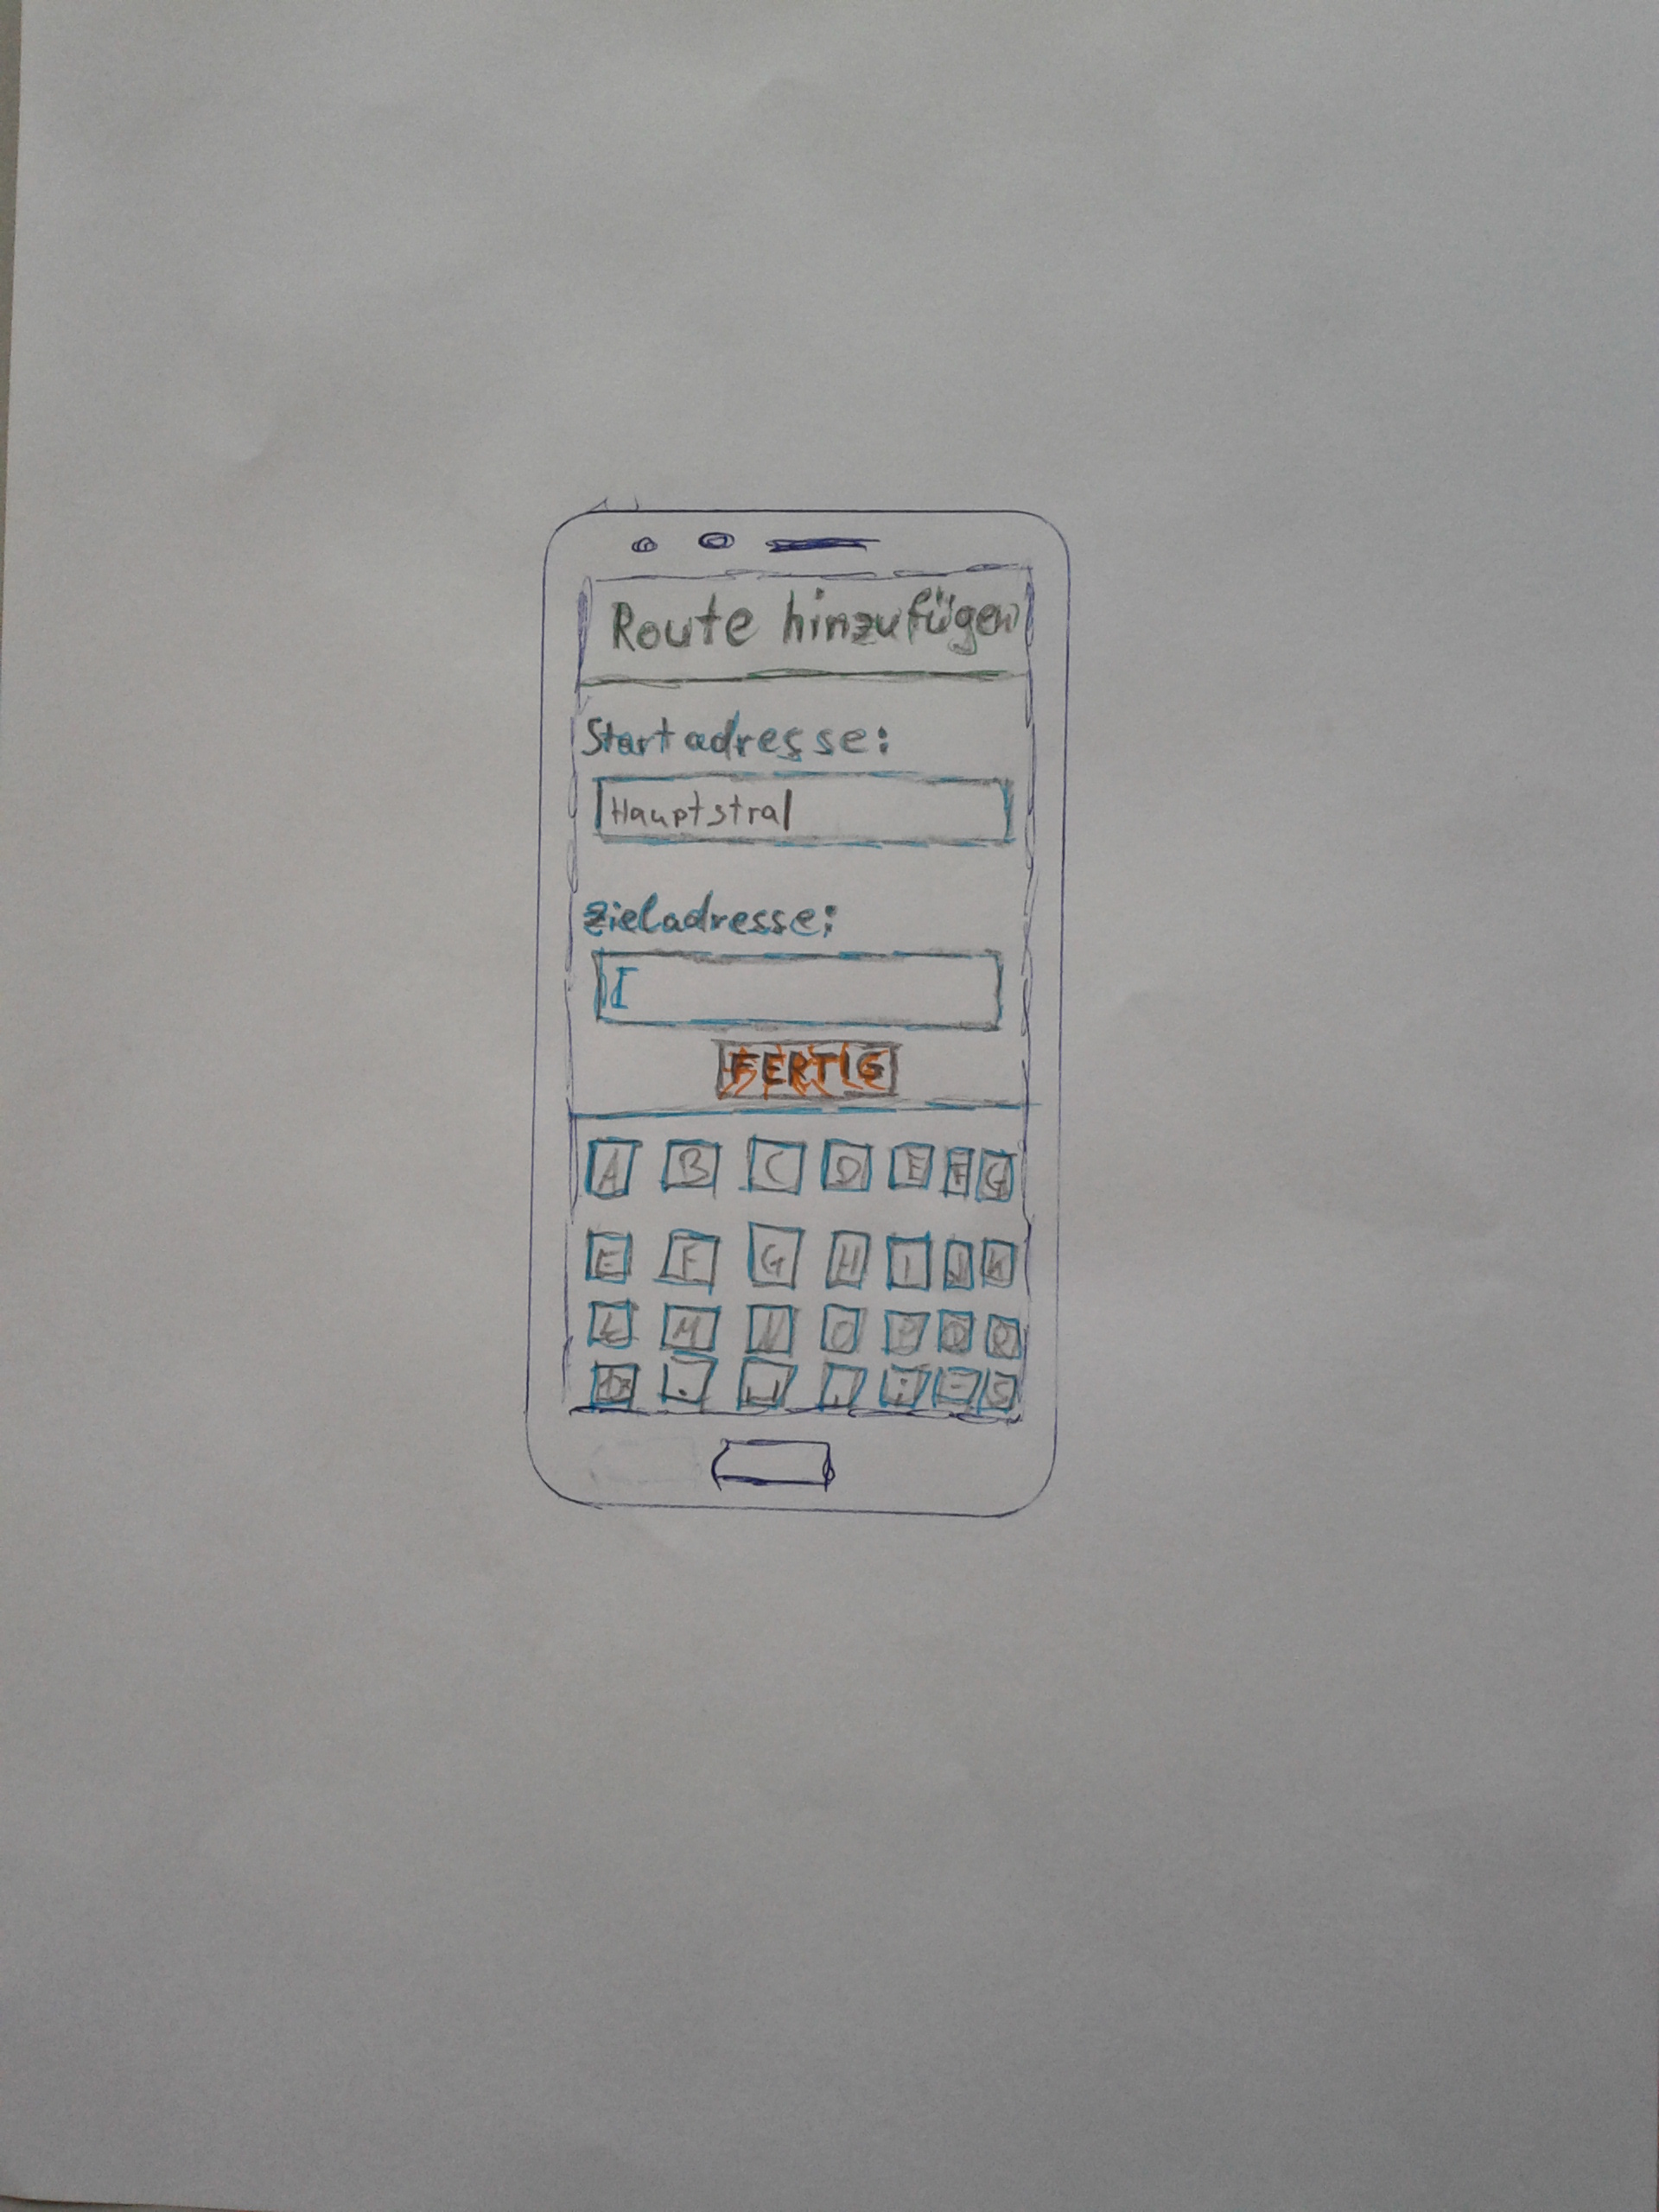 Route hinzufügen
Startadresse:
Hauptstra|
Zieladresse:
FERTIG
A B C D E F G
E F G H I J K
L M N O P Q R
. , : - S